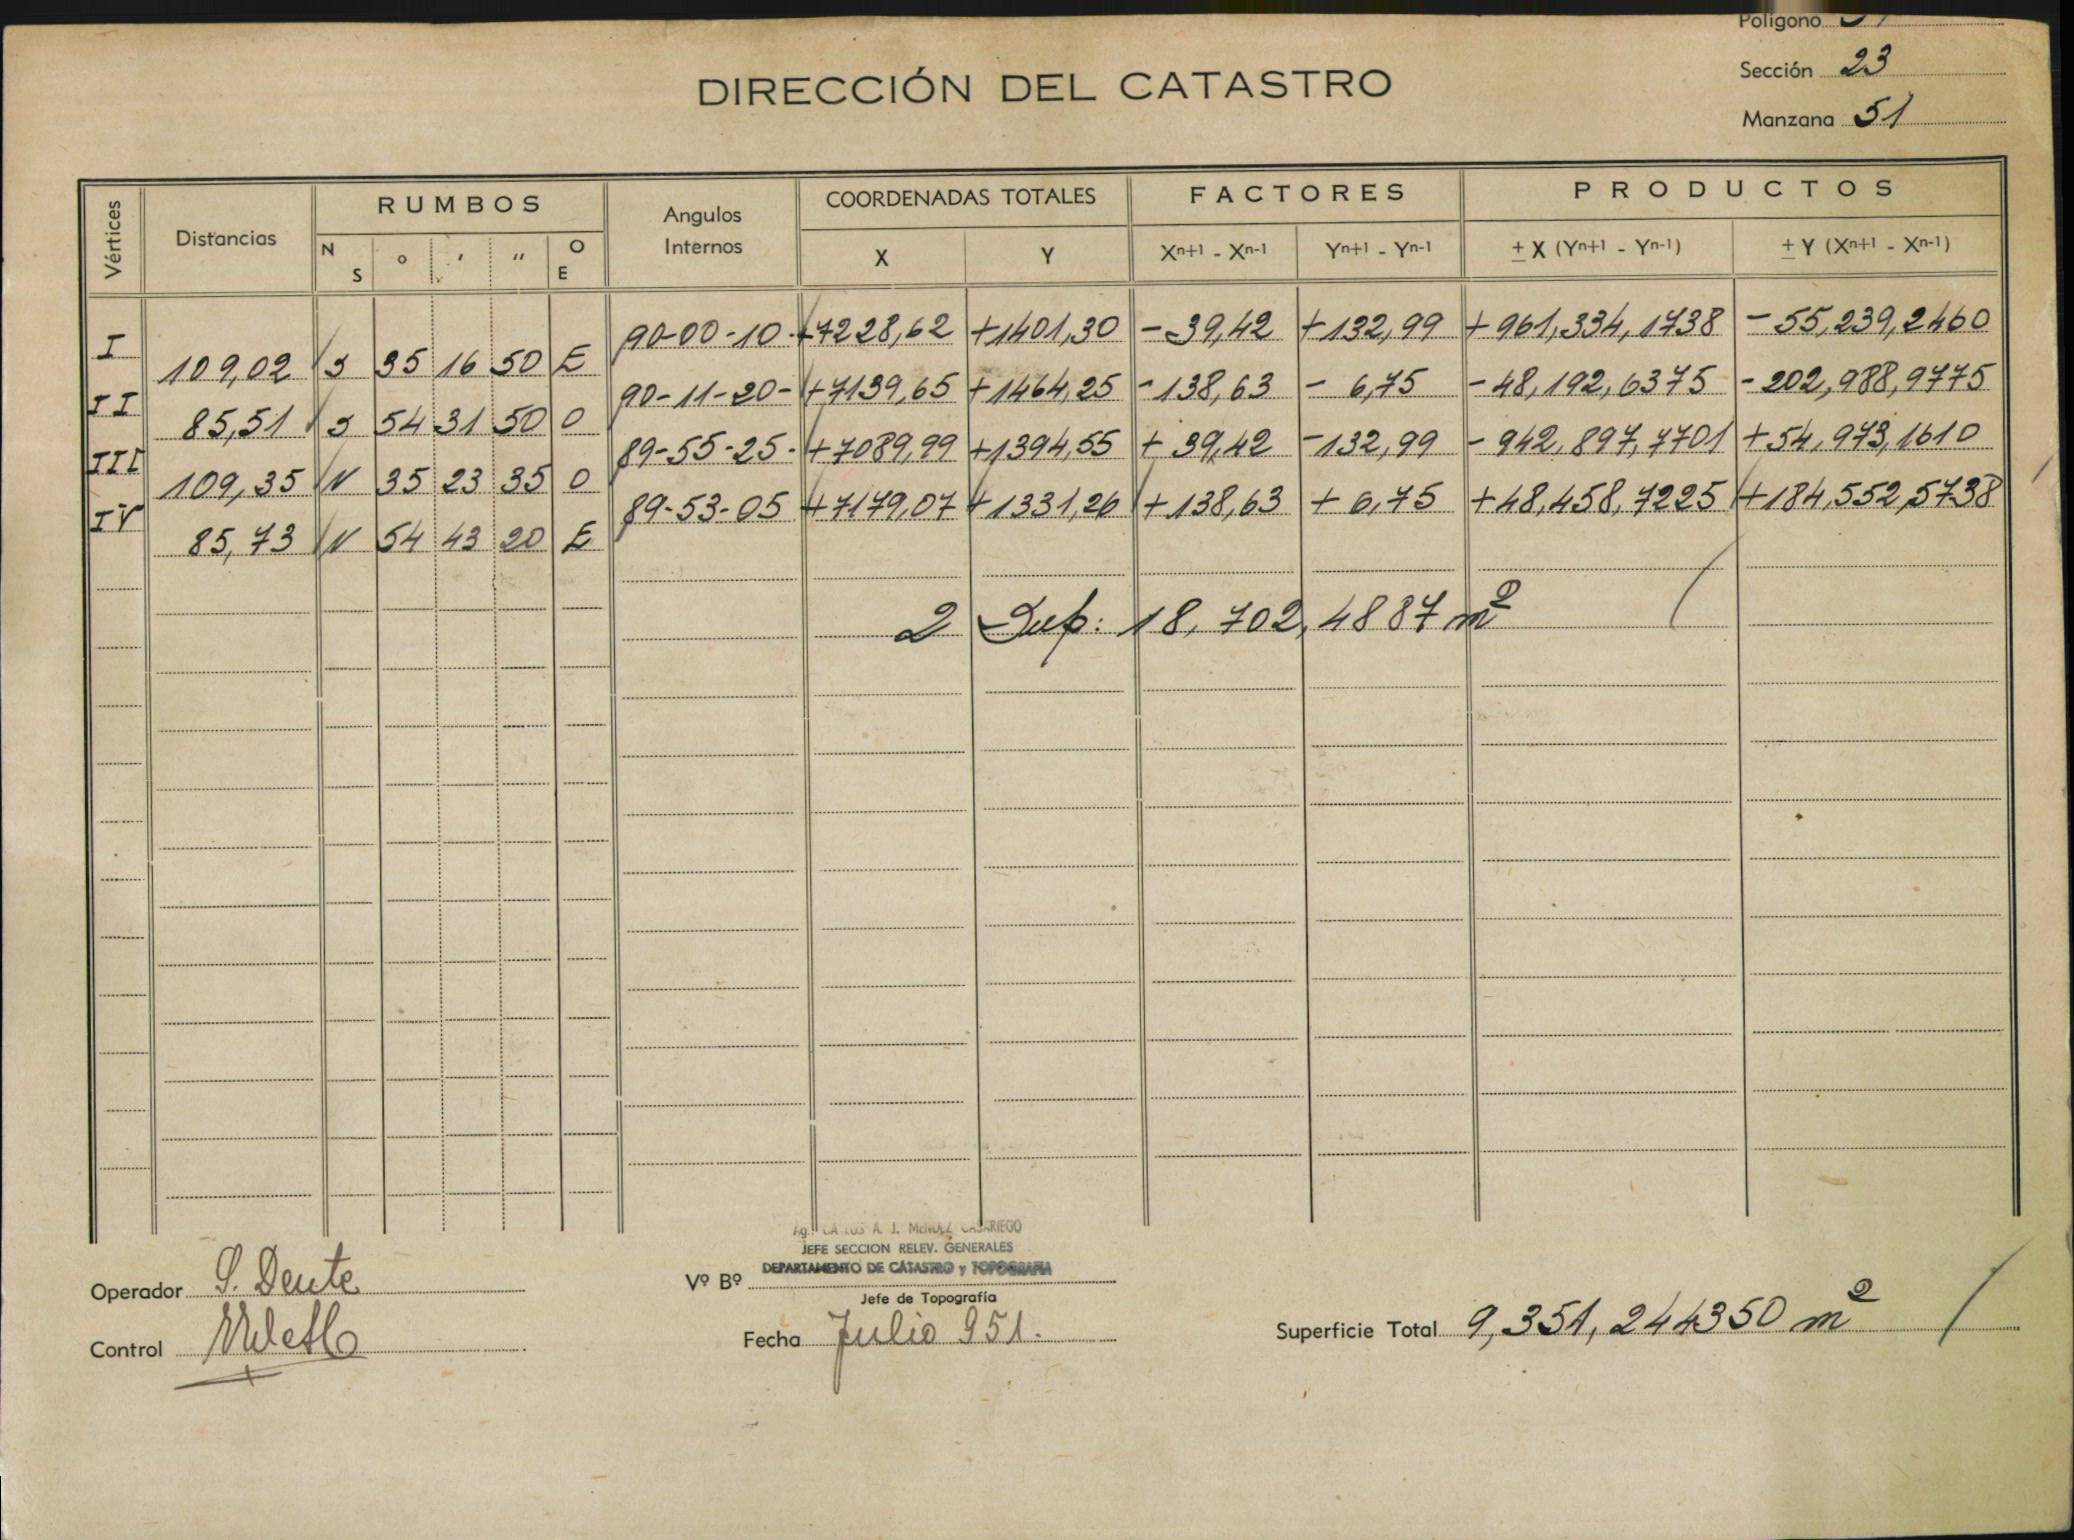 Polígono
Sección 23
Manzana 51
DIRECCIÓN DEL CATASTRO
Vértices Distancias RUMBOS Angulos Internos COORDENADAS TOTALES FACTORES PRODUCTOS
N S ° ' " O E X Y Xn+1 - Xn-1 Yn+1 - Yn-1 ± X (Yn+1 - Yn-1) ± Y (Xn+1 - Xn-1)
I 90-00-10- +7228,62 +1401,30 -39,42 +132,99 +961,334,1738 -55,239,2460
109,02 S 35 16 50 E
II 90-11-20- +7139,65 +1464,25 -138,63 - 6,75 -48,192,6375 -202,988,9775
85,51 S 54 31 50 O
III 89-55-25- +7089,99 +1394,55 + 39,42 -132,99 -942,897,7701 +54,973,1610
109,35 N 35 23 35 O
IV 89-53-05 +7179,07 +1331,26 +138,63 + 6,75 +48,458,7225 +184,552,5738
85,73 N 54 43 20 E
2 Sup: 18,702,4887 m²
Ag. CARLOS A. J. MENDEZ CASARIEGO
JEFE SECCION RELEV. GENERALES
DEPARTAMENTO DE CATASTRO y TOPOGRAFIA
Operador S. Dente
Vº Bº
Jefe de Topografía
Control
Fecha Julio 951.
Superficie Total 9,351,244350 m²